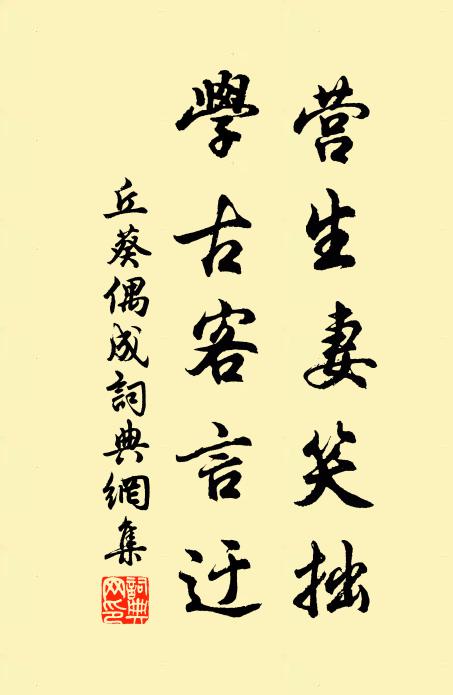 营生妻笑拙
學古客言迂
丘葵偶成詞典網集
詞典网印